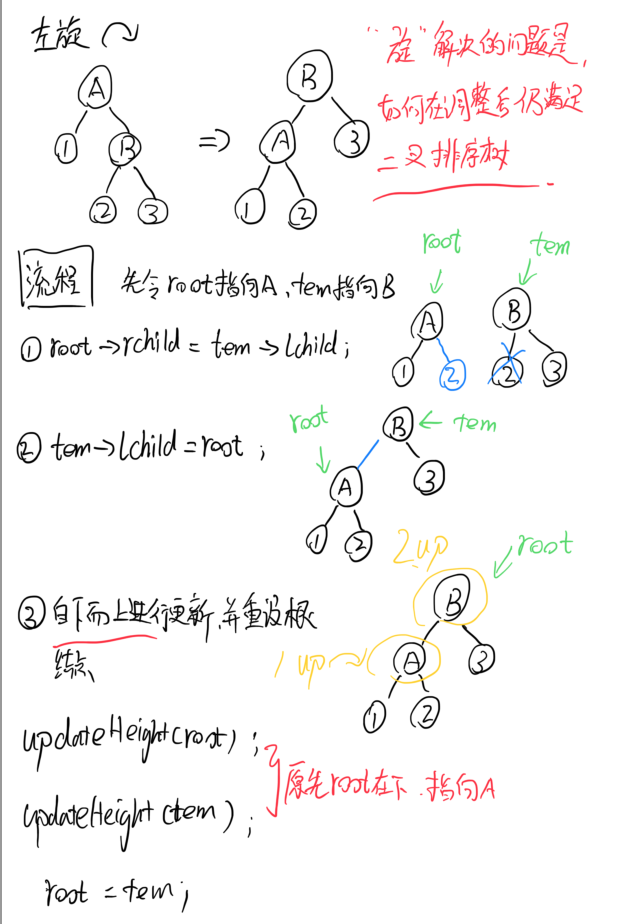 左旋
A
1 B
2 3
=>
B
A 3
1 2
"旋"解决的问题是,
如何在调整后仍满足
二叉排序树
流程 先令root指向A、tem指向B
① root→rchild = tem→lchild;
root tem
A B
1 2 2 3
② tem→lchild=root;
root B ← tem
A 3
1 2
③ 自下而上进行更新,并重设根
结点
2 up root
B
1 up A 3
1 2
updateHeight(root);
updateHeight(tem);
原先root在下.指向A
root = tem;